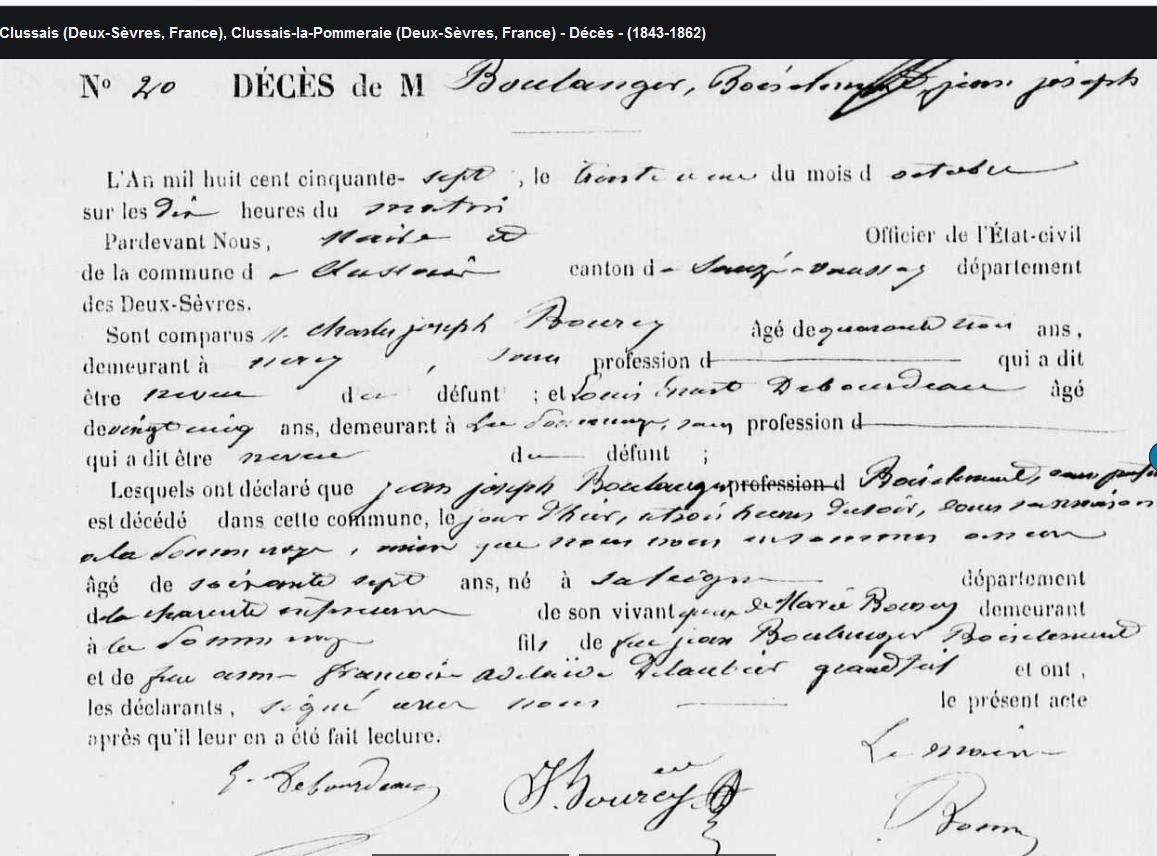 Clussais (Deux-Sèvres, France), Clussais-la-Pommeraie (Deux-Sèvres, France) - Décès - (1843-1862)
No 20 DÉCÈS de M Boulanger, Boisclement, jean joseph
L'An mil huit cent cinquante- sept, le trente et un du mois d octobre
sur les Dix heures du matin
Pardevant Nous, Maire et Officier de l'État-civil
de la commune d e Clussais canton d e Sauzé-vaussay département
des Deux-Sèvres.
Sont comparus M. charles joseph Bourcy âgé de quarante trois ans,
demeurant à , sans profession d qui a dit
être neveu du défunt ; et Louis Debourdeau âgé
de vingt cinq ans, demeurant à La , sans profession d
qui a dit être neveu du défunt ;
Lesquels ont déclaré que jean joseph Boulanger profession d Boisclement, sans
est décédé dans cette commune, le jour d'hier, à trois heures du soir, dans sa maison
a la , que nous nous en sommes
âgé de soixante sept ans, né à département
de la charente inférieure de son vivant de Marie Bourcy demeurant
à la fils de feu jean Boulanger Boisclement
et de feue francoise adelaïde et ont,
les déclarants, signé avec nous le présent acte
après qu'il leur en a été fait lecture.
E. Debourdeau Bourcy Le maire